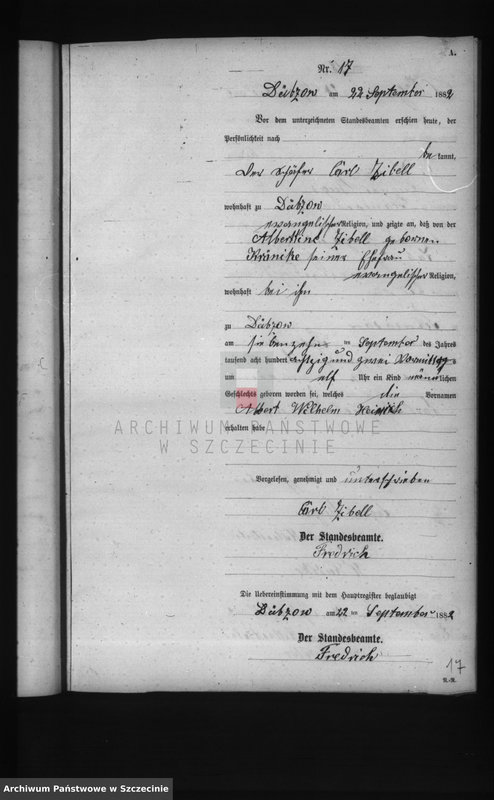 A.
Nr. 17
Dübzow am 22 September 1882
Vor dem unterzeichneten Standesbeamten erschien heute, der
Persönlichkeit nach
bekannt,
der Schäfer Carl Zibell
wohnhaft zu Dübzow
evangelischer Religion, und zeigte an, daß von der
Albertine Zibell gebornen
Kränike seiner Ehefrau
evangelischer Religion,
wohnhaft bei ihm
zu Dübzow
am siebenzehn ten September des Jahres
tausend acht hundert achtzig und zwei Vormittags
um elf Uhr ein Kind männlichen
Geschlechts geboren worden sei, welches die Vornamen
Albert Wilhelm Heinrich
erhalten habe
ARCHIWUM PAŃSTWOWE
W SZCZECINIE
Vorgelesen, genehmigt und unterschrieben
Carl Zibell
Der Standesbeamte.
Fredrich
Die Uebereinstimmung mit dem Hauptregister beglaubigt
Dübzow am 22 ten September 1882
Der Standesbeamte.
Fredrich
17
Archiwum Państwowe w Szczecinie